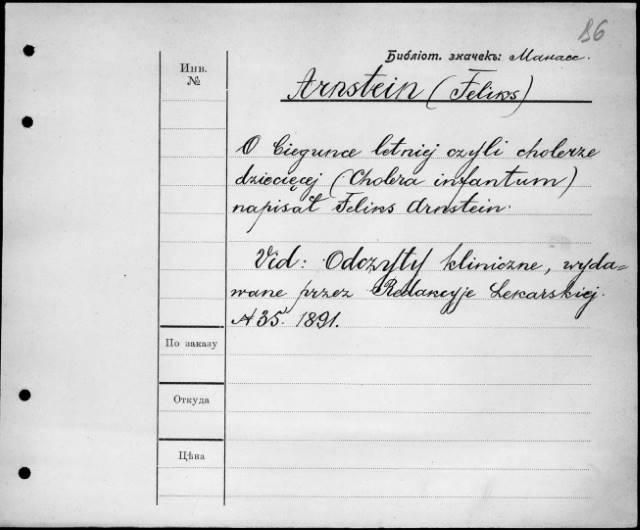 86
Библіот. значекъ: Манасс.
Инв.
№
Arnstein (Feliks)
O biegunce letniej czyli cholerze
dziecięcej (Cholera infantum)
napisał Feliks Arnstein.
Vid: Odczyty kliniczne, wyda=
wane przez Redakcyje Lekarskiej.
№ 35. 1891.
По заказу
Откуда
Цѣна